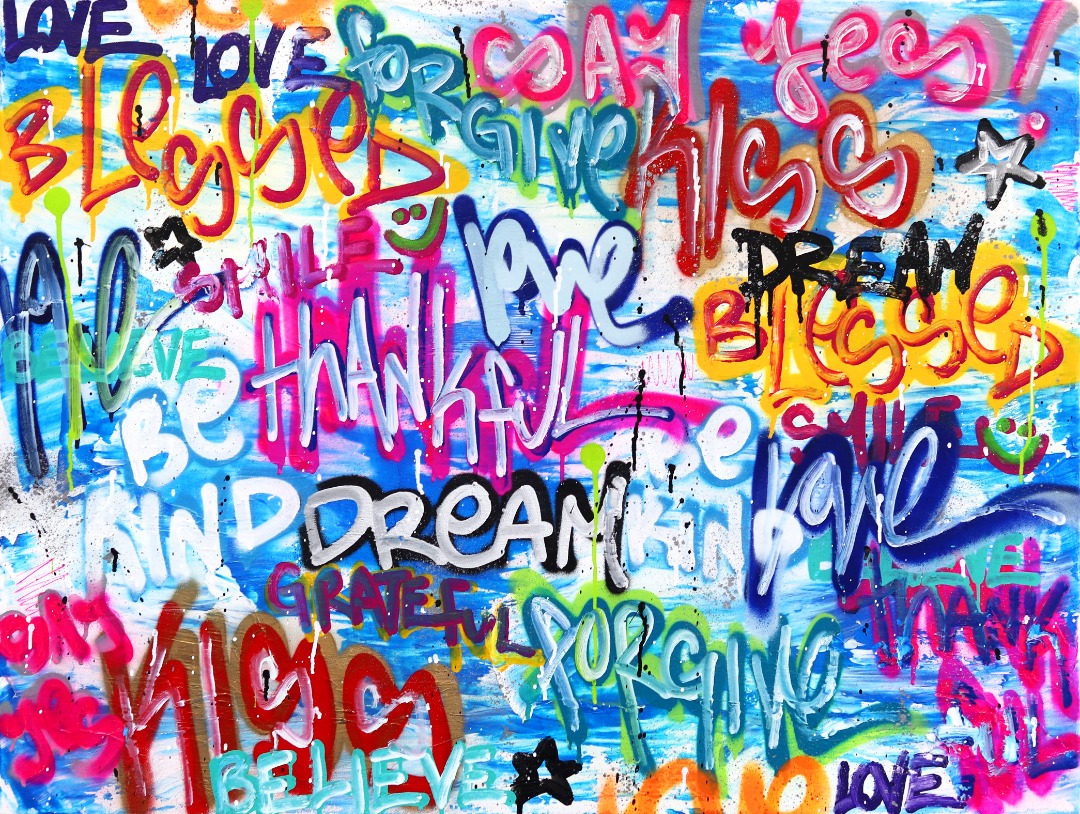 LOVE
LOVE
FORGIVE
SAY YES!
BLESSED
KISS
SMILE
LOVE
DREAM
BLESSED
BELIEVE
THANKFUL
BE
KIND
SMILE
BE
KIND
LOVE
DREAM
BELIEVE
GRATEFUL
FORGIVE
THANK
FUL
SAY
YES
KISS
BELIEVE
LOVE